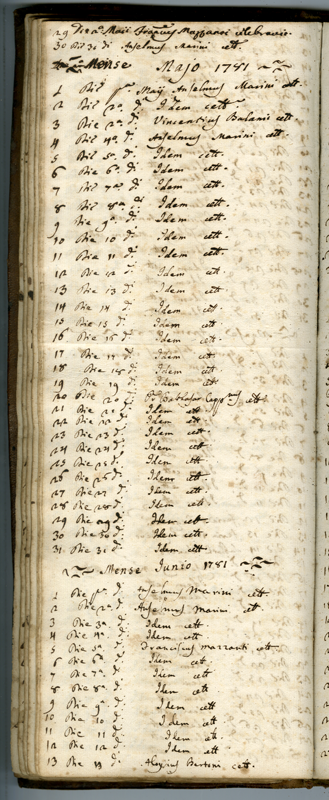 29 Die 29 Maii Franciscus Mazzanti celebravit.
30 Die 30 di Anselmus Marini cett.
Mense Majo 1781
1 Die pa. Maij Anselmus Marini cett.
2 Die 2a. di Idem cett.
3 Die 3a. di Vincentius cett.
4 Die 4a. di Anselmus Marini cett.
5 Die 5a. di Idem cett.
6 Die 6a. di Idem cett.
7 Die 7a. di Idem cett.
8 Die 8a. di Idem cett.
9 Die 9a. di Idem cett.
10 Die 10 di Idem cett.
11 Die 11 di Idem cett.
12 Die 12 di Idem cett.
13 Die 13 di Idem cett.
14 Die 14 di Idem cett.
15 Die 15 di Idem cett.
16 Die 16 di Idem cett.
17 Die 17 di Idem cett
18 Die 18 di Idem cett
19 Die 19 di Idem cett
20 Die 20 di cett
21 Die 21 di Idem cett
22 Die 22 di Idem cett
23 Die 23 di Idem cett.
24 Die 24 di Idem cett
25 Die 25 di Idem cett
26 Die 26 di Idem cett
27 Die 27 di Idem cett
28 Die 28 di Idem cett.
29 Die 29 di Idem cett
30 Die 30 di Idem cett.
31 Die 31 di Idem cett
Mense Junio 1781
1 Die pa. di Anselmus Marini cett
2 Die 2a. di Anselmus Marini cett
3 Die 3a. di Idem cett
4 Die 4a. di Idem cett
5 Die 5a. di Franciscus Mazzanti cett
6 Die 6a. di Idem cett
7 Die 7a. di Idem cett
8 Die 8a. di Idem cett
9 Die 9a. di Idem cett
10 Die 10 di Idem cett
11 Die 11 di Idem cett.
12 Die 12 di Idem cett
13 Die 13 di Aloysius Bertoni cett.